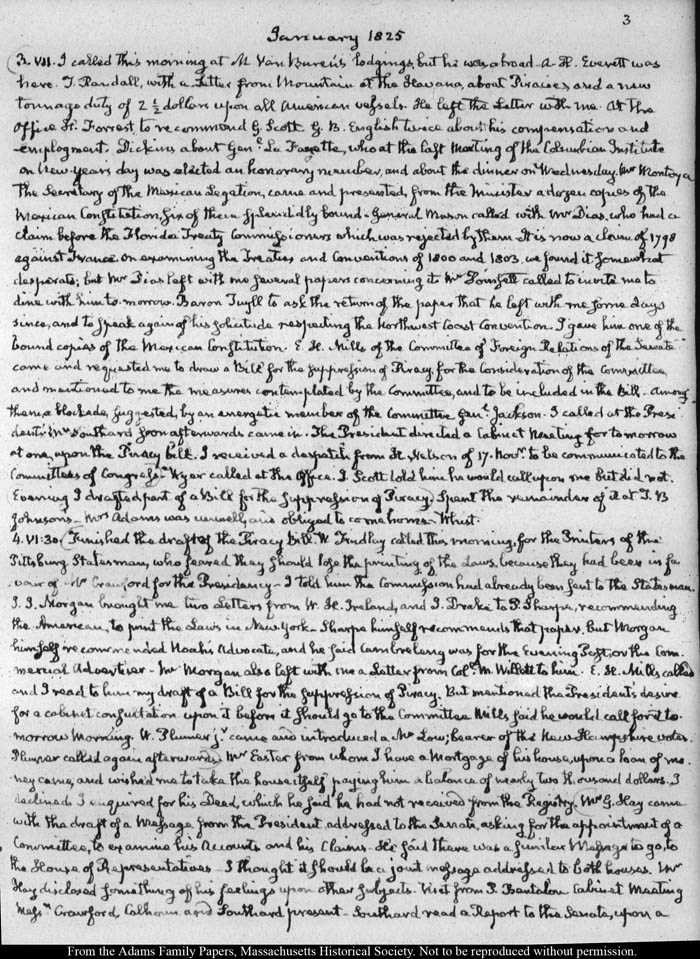 3
January 1825
3. VII. I called this morning at M Van Buren's lodgings, but he was abroad. A. H. Everett was
here. T. Randall, with a Letter from Mountain at the Havana, about Piracies, and a new
tonnage duty of 2 ½ dollars upon all American vessels. He left the Letter with me. At the
Office H. Forrest, to recommend G. Scott. G. B. English twice about his compensation and
employment. Dickins about Genl. La Fayette, who at the last Meeting of the Columbian Institute
on New years day was elected an honorary member, and about the dinner on Wednesday. Mr Montoya
The Secretary of the Mexican Legation, came and presented, from the Minister a dozen copies of the
Mexican Constitution, six of them splendidly bound. General Mason called with Mr Dias, who had a
claim before the Florida Treaty Commissioners which was rejected by them. It is now a claim of 1798
against France. On examining the Treaties and Conventions of 1800 and 1803. we found it somewhat
desperate; but Mr Dias left with me several papers concerning it. Mr Poinsett called to invite me to
dine with him to-morrow. Baron Tuyll to ask the return of the paper that he left with me some days
since, and to speak again of his solicitude respecting the Northwest Coast Convention. I gave him one of the
bound copies of the Mexican Constitution. E. H. Mills of the Committee of Foreign Relations of the Senate
came and requested me to draw a Bill for the suppression of Piracy, for the consideration of the Committee,
and mentioned to me the measures contemplated by the Committee, and to be included in the Bill. Among
them a blockade, suggested, by an energetic member of the Committee Genl. Jackson. I called at the Presi-
dent's; Mr Southard soon afterwards came in. The President directed a Cabinet Meeting for to morrow
at one, upon the Piracy bill. I received a despatch from H. Nelson of 17. Novr. to be communicated to the
Committees of Congress. Wyer called at the Office. J. Scott told him he would call upon me but did not.
Evening I drafted part of a Bill for the suppression of Piracy. Spent the remainder of it at T. B
Johnson's. Mrs Adams was unwell, and obliged to come home. Whist.
4. VI:30. Finished the draft of the Piracy Bill. W. Findley called this morning, for the Printers of the
Pittsburg Statesman, who feared they should lose the printing of the Laws, because they had been in fa-
vour of Mr Crawford for the Presidency. I told him the Commission had already been sent to the Statesman.
J. J. Morgan brought me two Letters from W. H. Ireland, and J. Drake to P. Sharpe, recommending
the American, to print the Laws in New York. Sharpe himself recommends that paper. But Morgan
himself recommended Noah's Advocate, and he said Cambreleng was for the Evening Post, or the Com-
mercial Advertiser. Mr Morgan also left with me a Letter from Coll. M. Willett to him. E. H. Mills called
and I read to him my draft of a Bill for the suppression of Piracy. But mentioned the President's desire
for a cabinet consultation upon it before it should go to the Committee Mills said he would call for it to-
morrow Morning. W. Plumer jr. came and introduced a Mr Low; bearer of the New Hampshire votes.
Plumer called again afterwards. Mr Easter from whom I have a Mortgage of his house, upon a loan of mo-
ney came, and wished me to take the house itself paying him a balance of nearly two thousand dollars. I
declined. I enquired for his Deed, which he said he had not received from the Registry. Mr G. Hay came
with the draft of a Message from the President addressed to the Senate, asking for the appointment of a
Committee, to examine his Accounts and his Claims. He said there was a similar Message to go, to
the House of Representatives. I thought it should be a joint message addressed to both houses. Mr
Hay disclosed something of his feelings upon other subjects. Visit from P. Bentalou. Cabinet Meeting
Messrs. Crawford, Calhoun and Southard present. Southard read a Report to the Senate, upon a
From the Adams Family Papers, Massachusetts Historical Society. Not to be reproduced without permission.